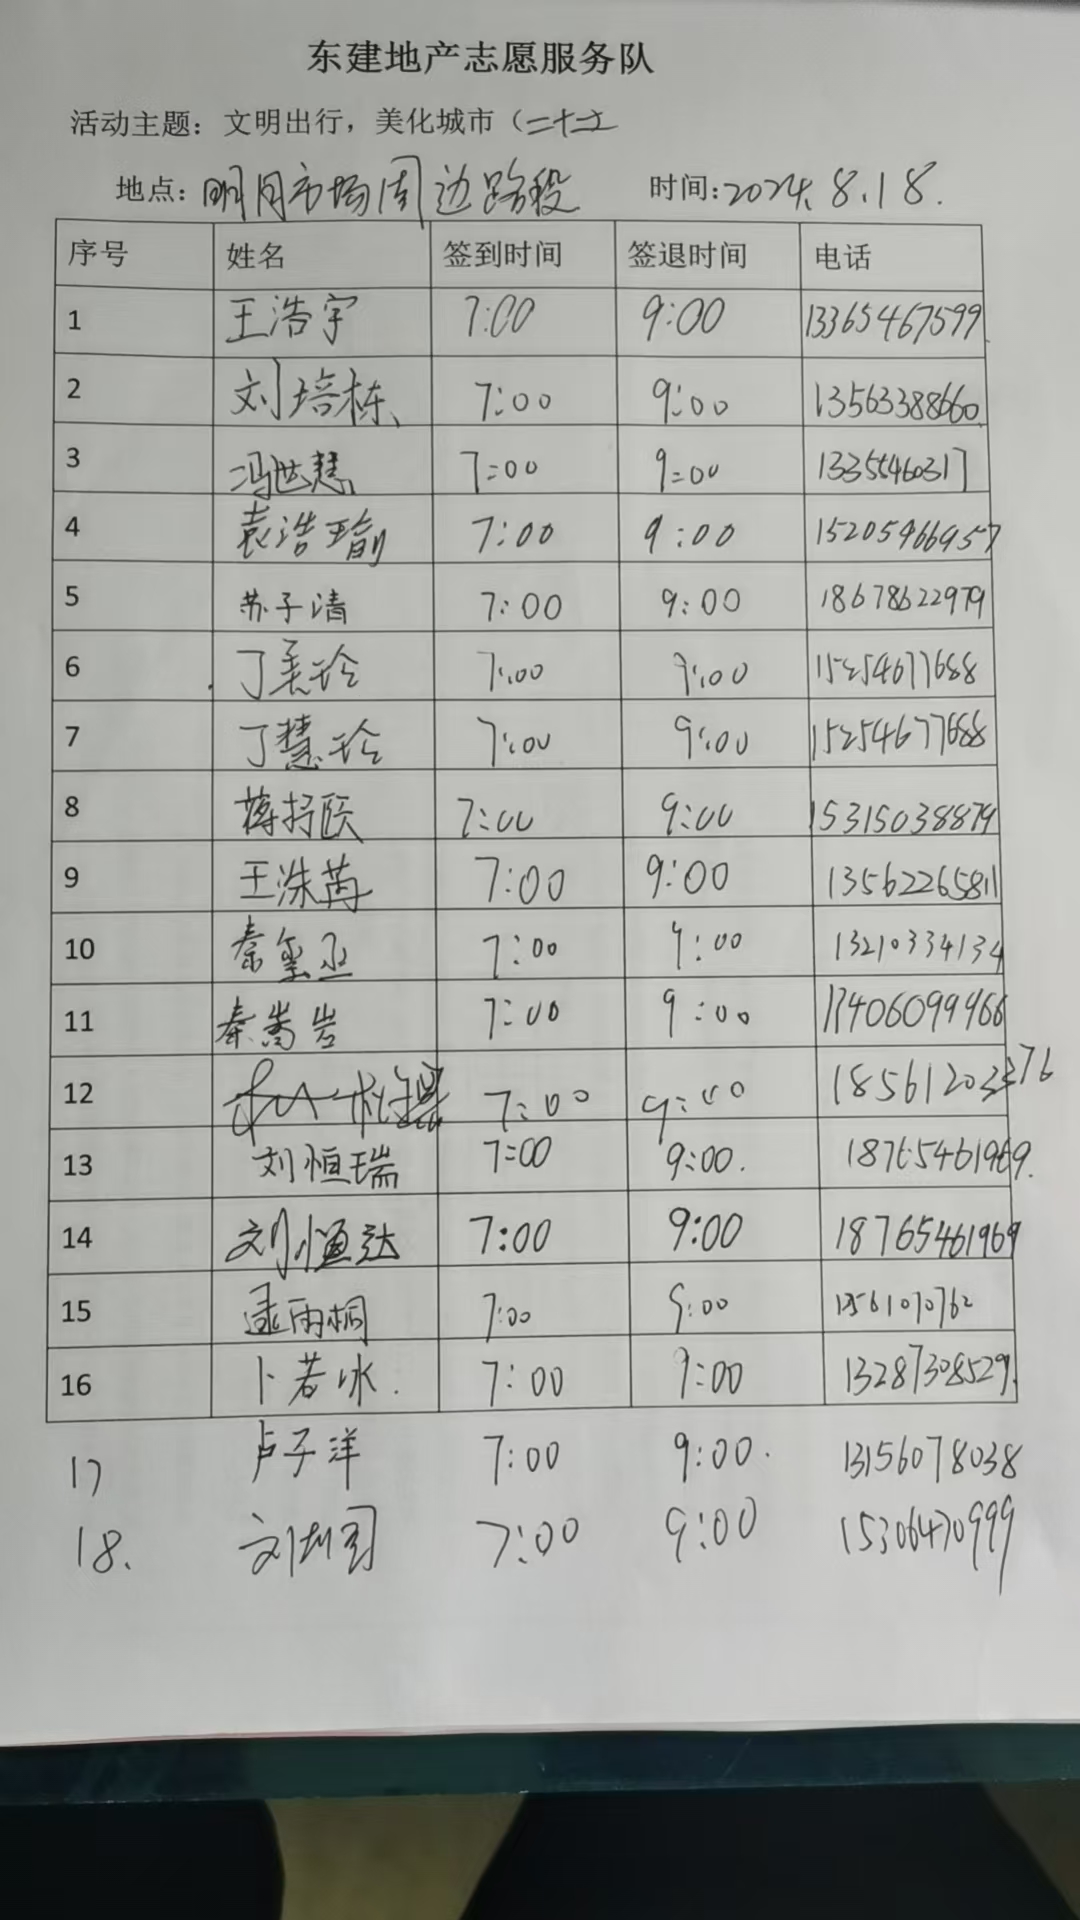 东建地产志愿服务队
活动主题：文明出行，美化城市（二十二
地点：明月市场周边路段 时间：2024.8.18.
序号 姓名 签到时间 签退时间 电话
1 王浩宇 7:00 9:00 13365467599
2 刘培栋 7:00 9:00 13563388660
3 冯世慧 7:00 9:00 13355460317
4 袁浩瑜 7:00 9:00 15205466957
5 苏子清 7:00 9:00 18678622979
6 丁美玲 7:00 9:00 15254677688
7 丁慧玲 7:00 9:00 15254677688
8 蒋抒颐 7:00 9:00 15315038879
9 王洙苒 7:00 9:00 13562265811
10 秦玺丞 7:00 9:00 13210334134
11 秦嵩岩 7:00 9:00 17406099466
12 7:00 9:00 18561203376
13 刘恒瑞 7:00 9:00. 18765461969.
14 刘恒达 7:00 9:00 18765461969
15 雨桐 7:00 9:00
16 卜若冰. 7:00 9:00 13287308529.
17 卢子洋 7:00 9:00. 13156078038
18. 刘 7:00 9:00 15306470999